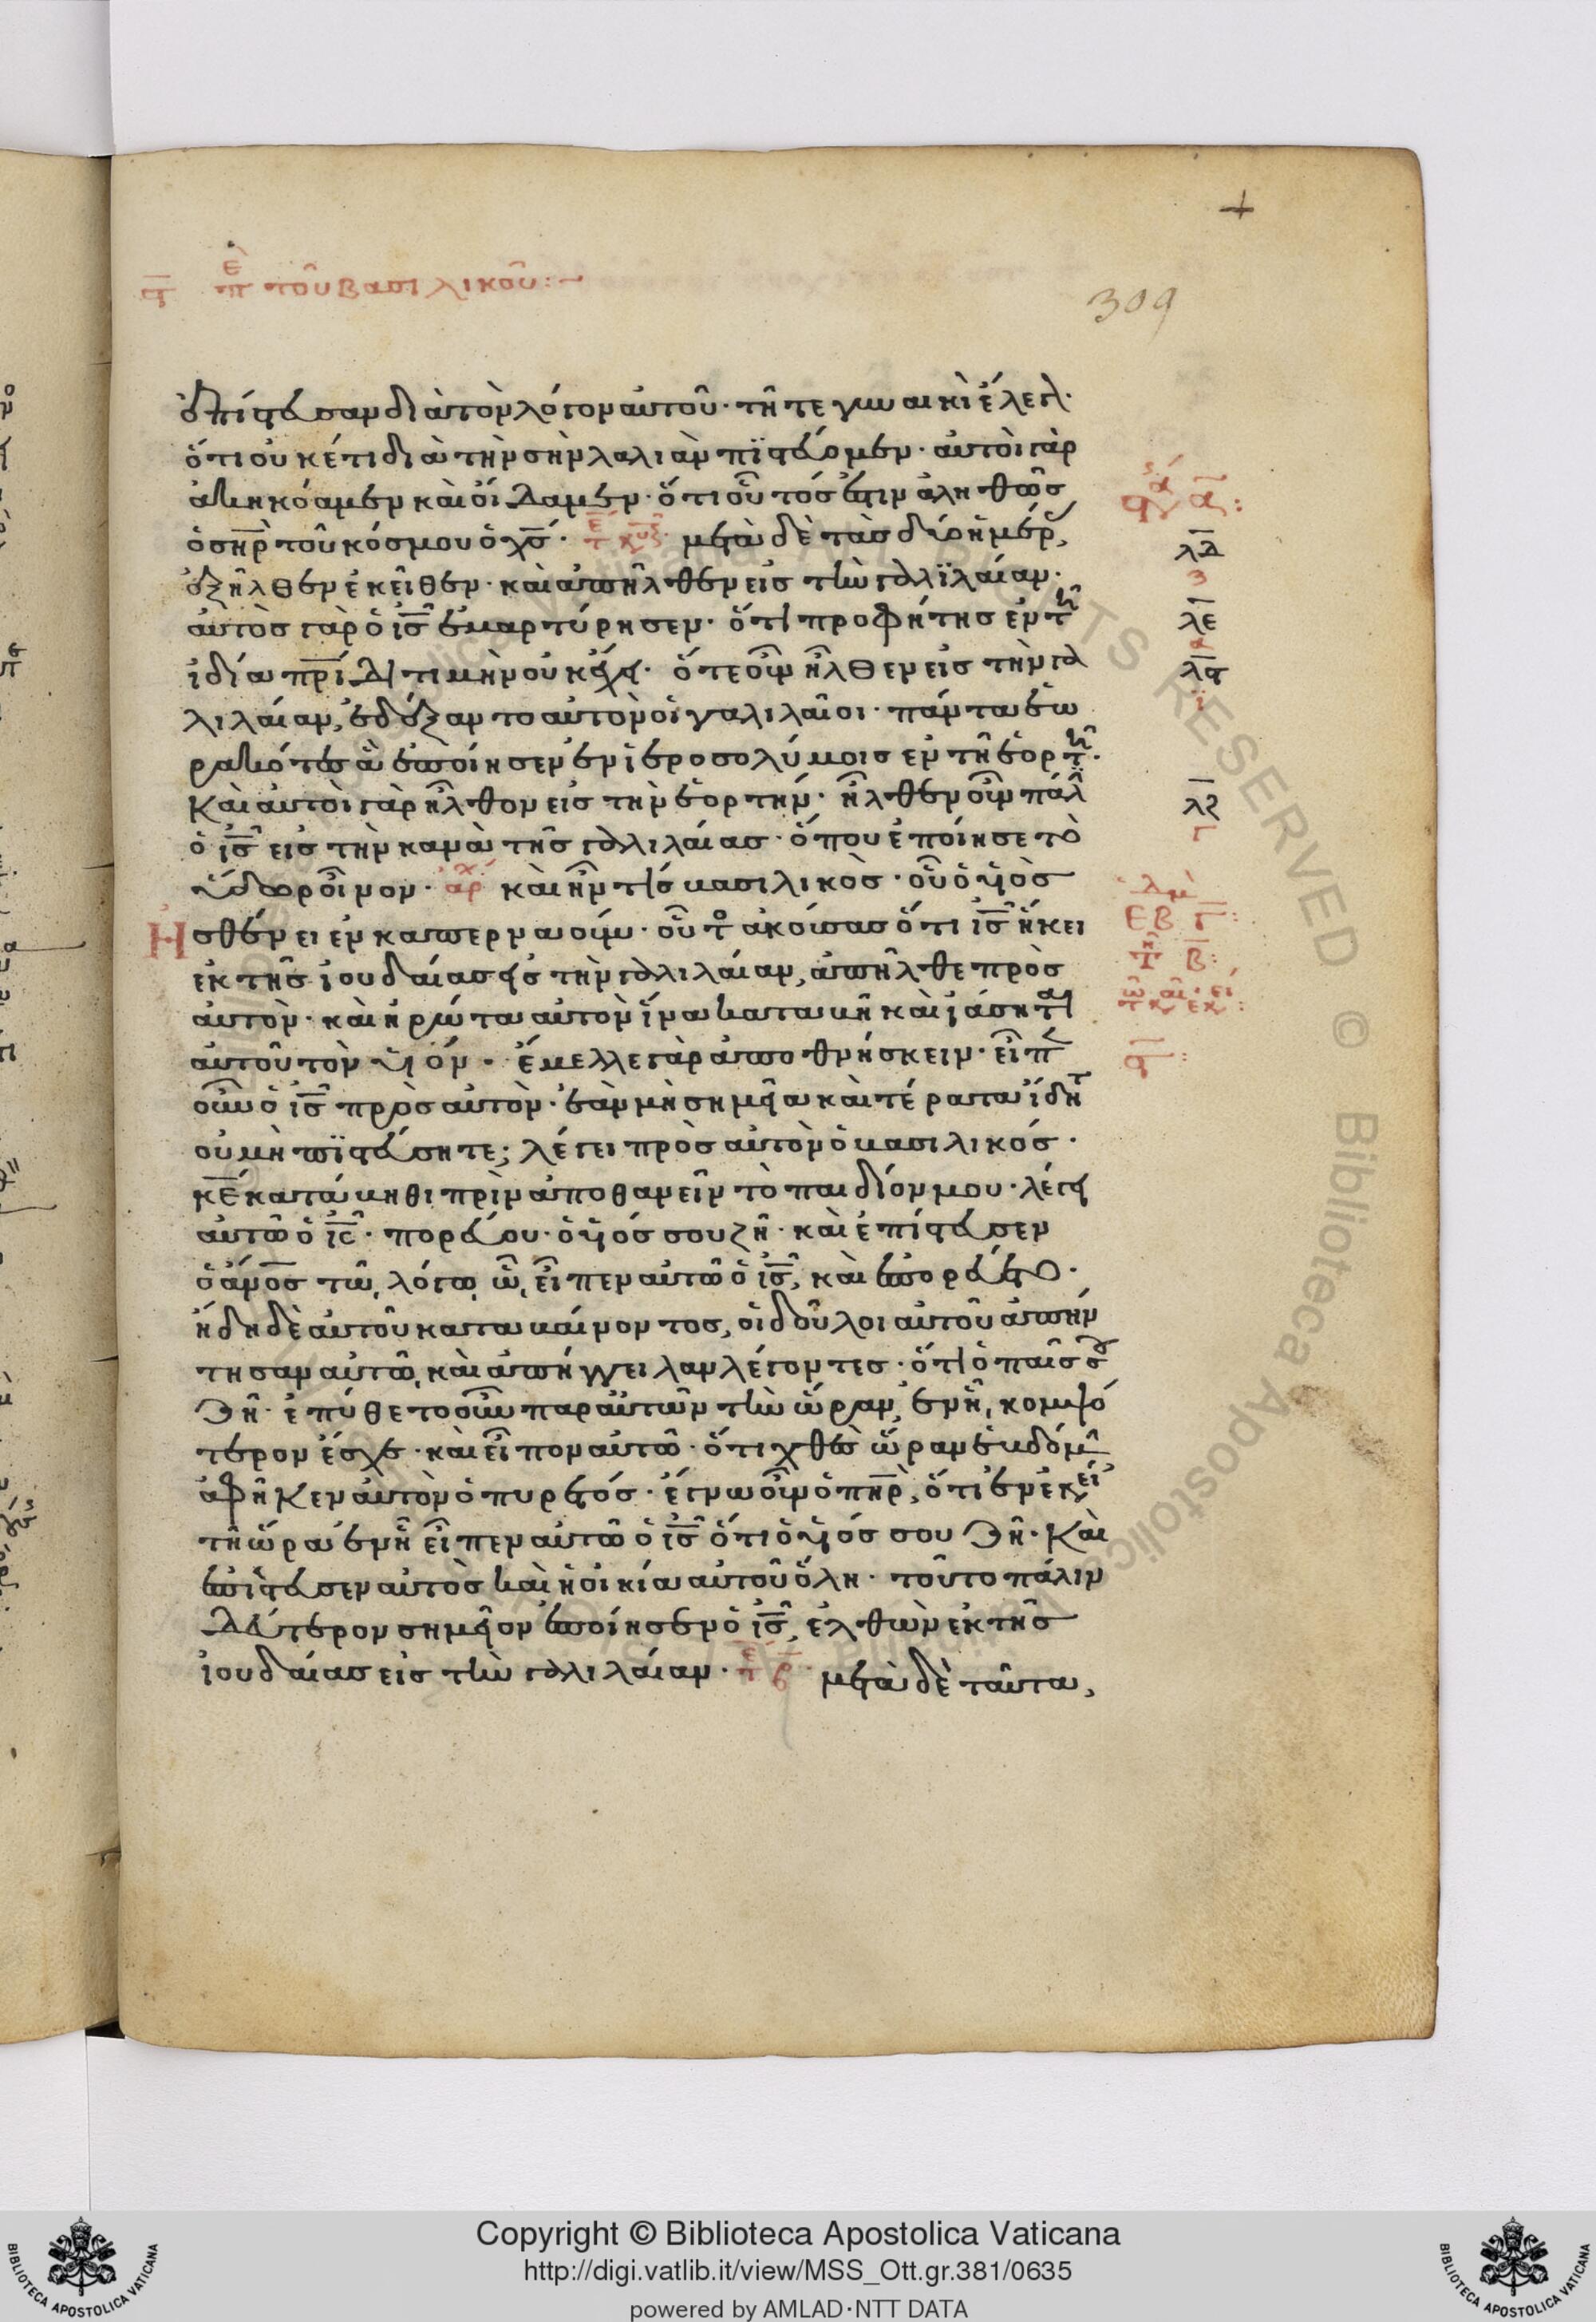 ϛ πε τοῦ βασιλικοῦ:~
309
ἐπίστευσαν διὰ τὸν λόγον αὐτοῦ· τῆ τε γυναικὶ ἔλεγον·
ὅτι οὐκέτι διὰ τὴν σὴν λαλιὰν πϊστεύομεν· αὐτοὶ γὰρ
ἀκηκόαμεν καὶ οἴδαμεν· ὅτι οὗτός ἐστιν ἀληθῶς
ὁ σηρ τοῦ κόσμου ὁ χς· μετὰ δὲ τὰς δύο ἡμέρ,
ἐξῆλθεν ἐκεῖθεν· καὶ ἀπῆλθεν εἰς τὴν γαλϊλαίαν·
αὐτὸς γὰρ ὁ ις ἐμαρτύρησεν· ὅτι προφήτης ἐν τῆ
ἰδία πρίδι τιμὴν οὐκ ἔχει· ὅτε οὖν ἦλθεν εἰς τὴν γα
λιλαίαν, ἐδέξαντο αὐτὸν οἱ γαλιλαῖοι· πάντα ἑω
ρακότες ἃ ἐποίησεν ἐν ἱεροσολύμοις ἐν τῆ ἑορτῆ·
καὶ αὐτοὶ γὰρ ἦλθον εἰς τὴν ἑορτήν· ἦλθεν οὖν πάλ
ὁ ις εἰς τὴν κανὰ τῆς γαλιλαίας· ὅπου ἐποίησε τὸ
ὕδωρ οἶνον· ἀρχ καὶ ἦν τὶς βασιλικὸς· οὗ ὁ υἱὸς
Ησθένει ἐν καπερναούμ· οὗτος ἀκούσας ὅτι ις ἥκει
ἐκ τῆς ἰουδαίας εἰς τὴν γαλιλαίαν, ἀπῆλθε πρὸς
αὐτὸν· καὶ ἠρώτα αὐτὸν ἵνα καταβῆ καὶ ἰάσηται
αὐτοῦ τὸν υἱόν· ἔμελλε γὰρ ἀποθνήσκειν· εἶπεν
οὖν ὁ ις πρὸς αὐτὸν· ἐὰν μὴ σημεῖα καὶ τέρατα ἴδητ
οὐ μὴ πϊστεύσητε; λέγει πρὸς αὐτὸν ὁ βασιλικός·
κε κατάβηθι πρὶν ἀποθανεῖν τὸ παιδίον μου· λέγει
αὐτῶ ὁ ις· πορεύου· ὁ υἱός σου ζῆ· καὶ ἐπίστευσεν
ὁ ἀνος τῶ λόγω ὧ εἶπεν αὐτῶ ὁ ις, καὶ ἐπορεύετο·
ἤδη δὲ αὐτοῦ καταβαίνοντος, οἱ δοῦλοι αὐτοῦ ἀπήν
τησαν αὐτῶ, καὶ ἀπήγγειλαν λέγοντες· ὅτι ὁ παῖς σου
ζῆ· ἐπύθετο οὖν παρ αὐτῶν τὴν ὥραν, ἐν ἧ κομψό
τερον ἔσχε· καὶ εἶπον αὐτῶ· ὅτι χθὲς ὥραν ἑβδόμην
ἀφῆκεν αὐτὸν ὁ πυρετός· ἔγνω οὖν ὁ πηρ, ὅτι ἐν ἐκείνη
τῆ ὥρα ἐν ἧ εἶπεν αὐτῶ ὁ ις ὅτι ὁ υἱός σου ζῆ· καὶ
ἐπίστευσεν αὐτὸς καὶ ἡ οἰκία αὐτοῦ ὅλη· τοῦτο πάλιν
δεύτερον σημεῖον ἐποίησεν ὁ ις, ἐλθὼν ἐκ τῆς
ἰουδαίας εἰς τὴν γαλιλαίαν· μετὰ δὲ ταῦτα,
λδ
λε
λϛ
λζ
Copyright © Biblioteca Apostolica Vaticana
http://digi.vatlib.it/view/MSS_Ott.gr.381/0635
powered by AMLAD·NTT DATA